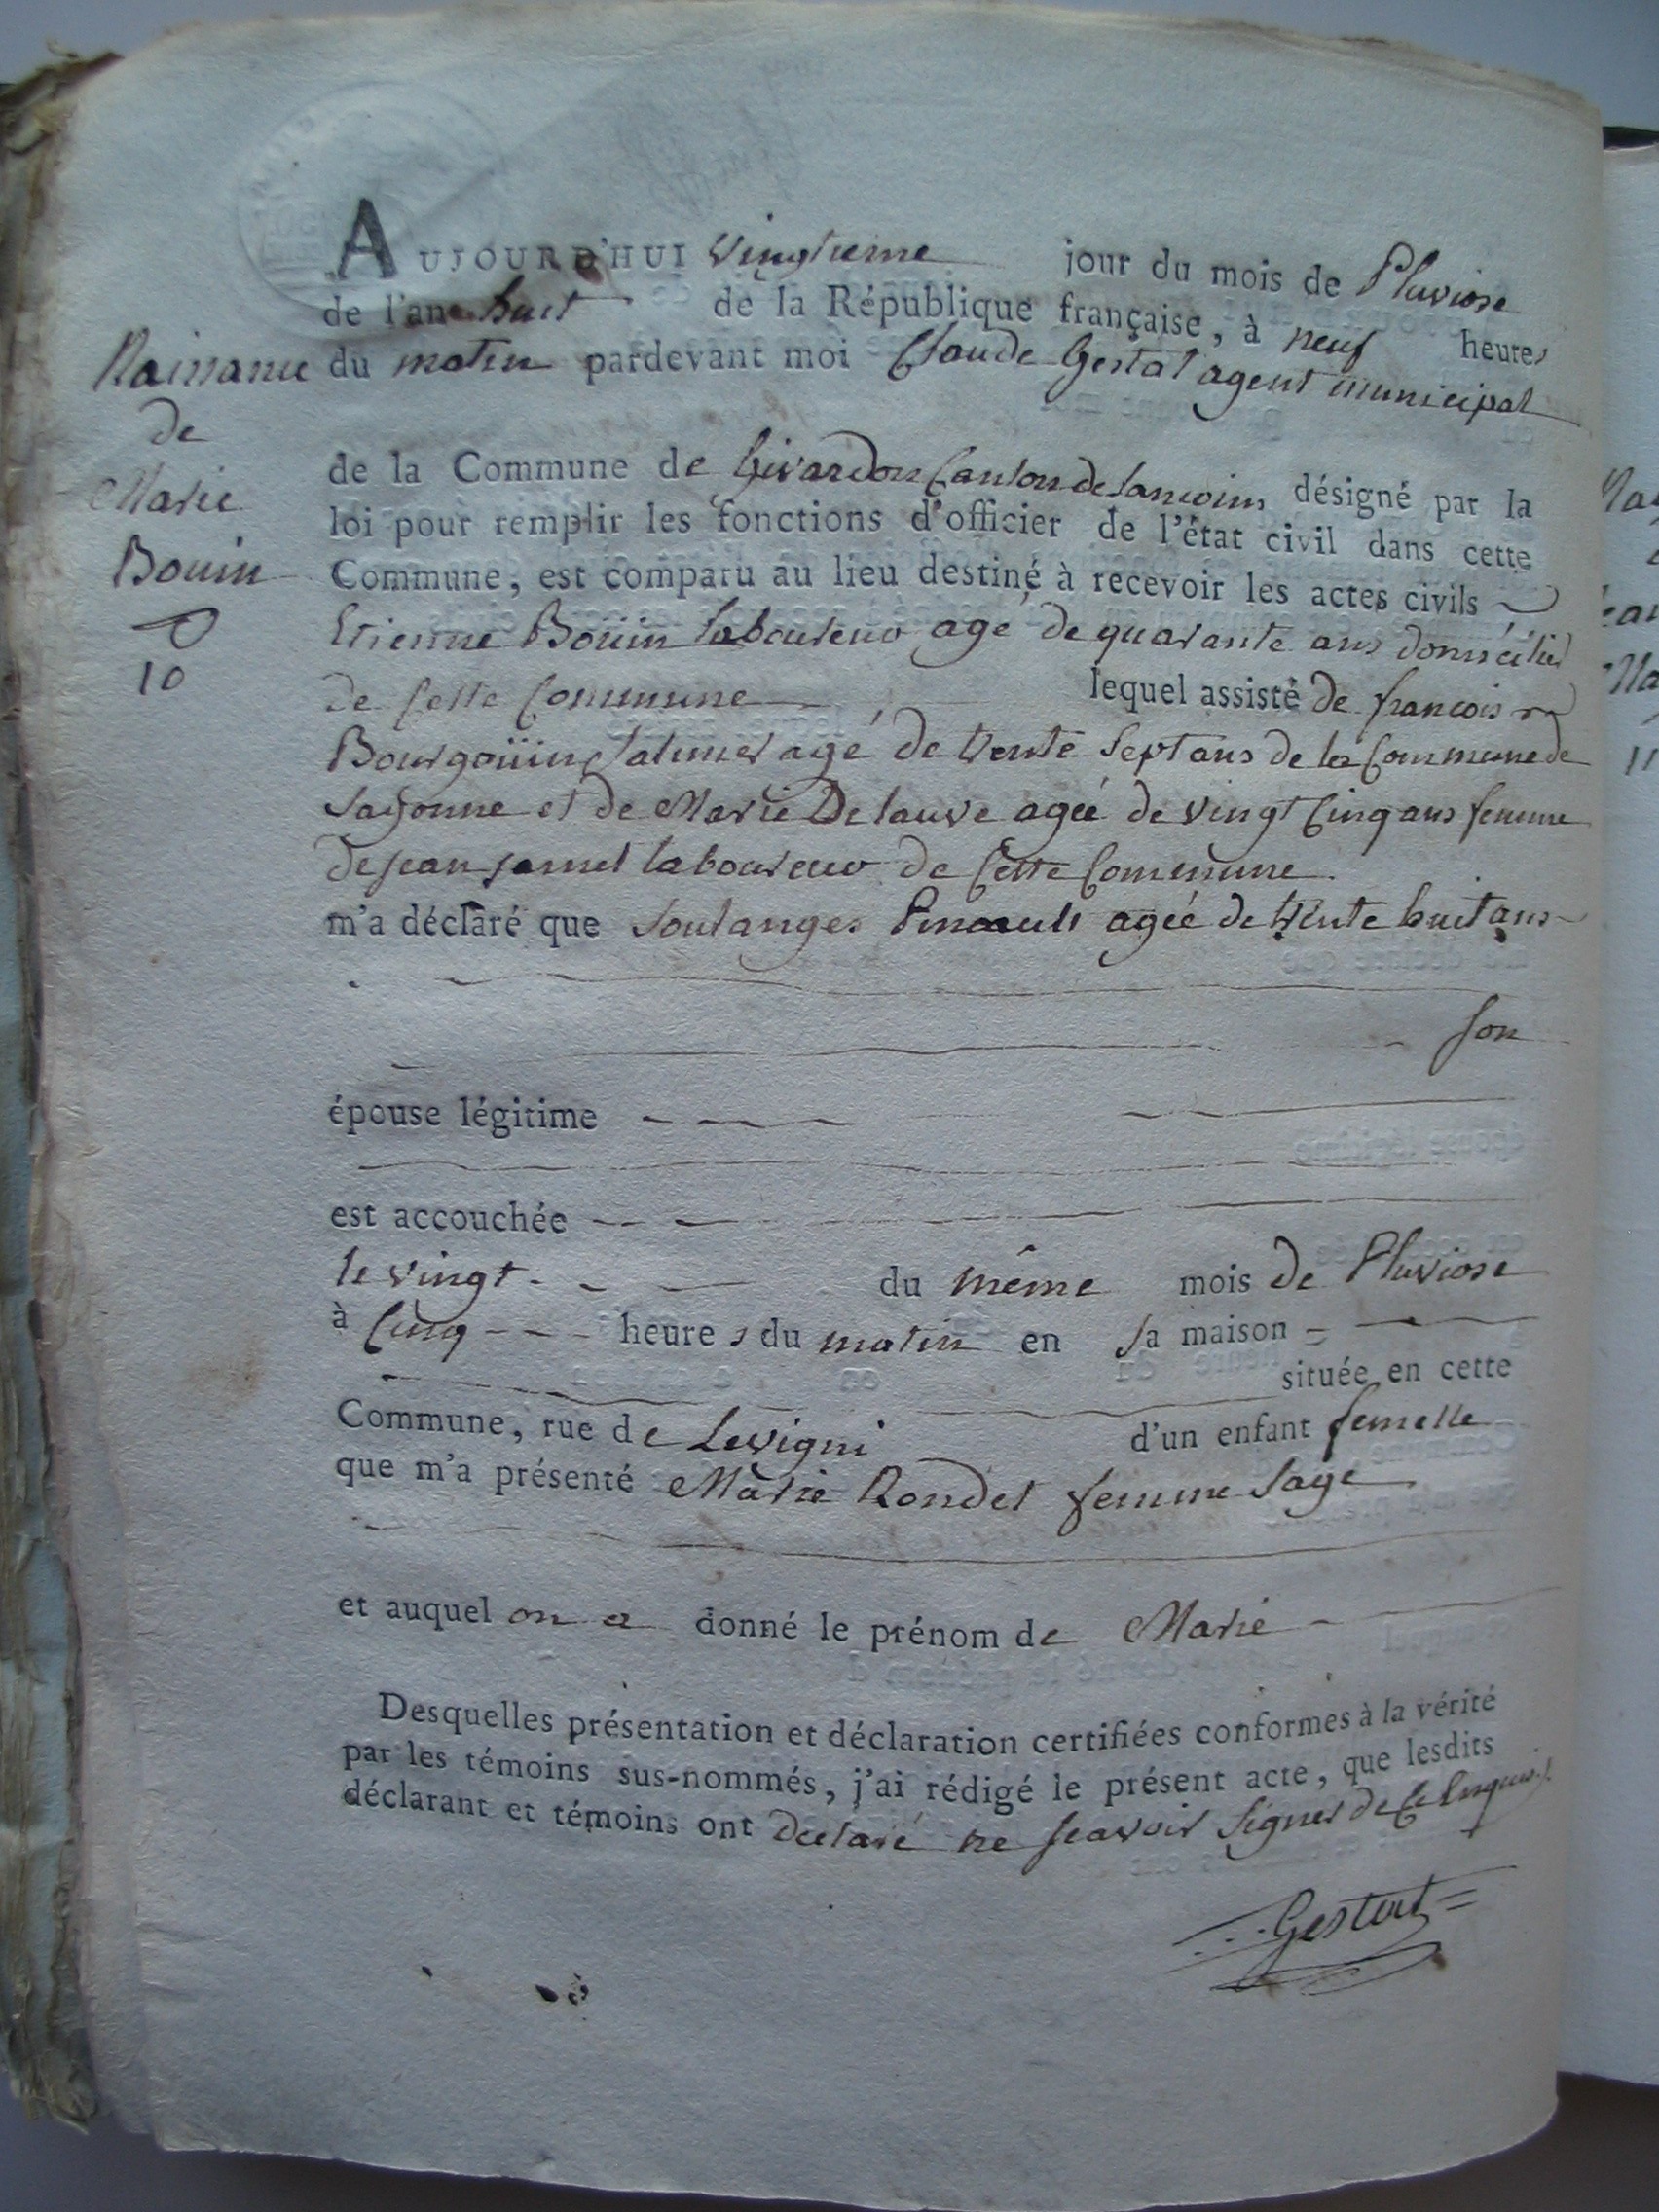 AUJOURD'HUI vingtieme jour du mois de Pluviose
de l'an huit de la République française, à neuf heures
du matin pardevant moi Claude Gestat agent municipal
Naissance
de
Marie
Bouin
10
de la Commune de Givardon Canton de Sancoins, désigné par la
loi pour remplir les fonctions d'officier de l'état civil dans cette
Commune, est comparu au lieu destiné à recevoir les actes civils
Etienne Boüin laboureur agé de quarante ans domicilié
de Cette Commune lequel assisté de francois
Bourgoüin agé de trente Sept ans de la Commune de
Sagonne et de Marie Delauve agée de vingt Cinq ans femme
de jean jamet laboureur de Cette Commune.
m'a déclaré que Soulanges Pinault agée de trente huit ans
son
épouse légitime
est accouchée
le vingt du même mois de Pluviose
à Cinq heures du matin en sa maison
située en cette
Commune, rue de Levigni d'un enfant femelle
que m'a présenté Marie Rondet femme Sage
et auquel on a donné le prénom de Marie
Desquelles présentation et déclaration certifiées conformes à la vérité
par les témoins sus-nommés, j'ai rédigé le présent acte, que lesdits
déclarant et témoins ont declaré ne scavoir signer de Ce Enquis
Gestat